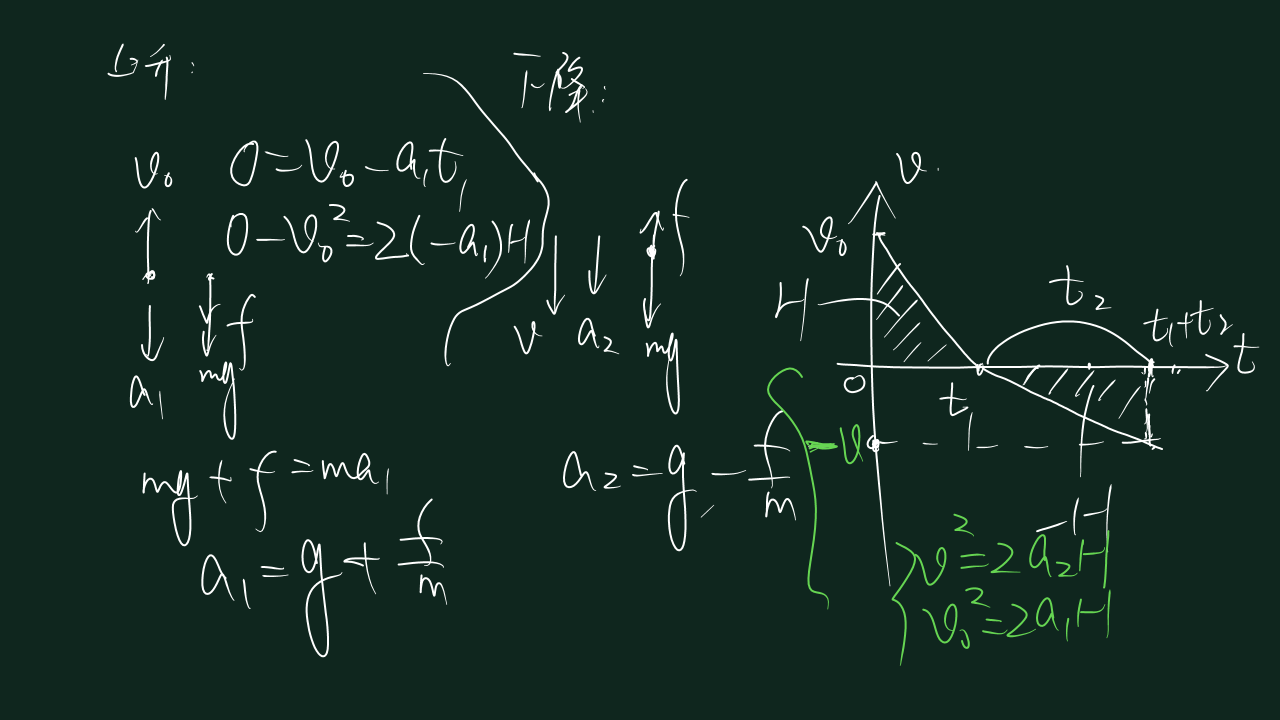 上升:
v₀
0=v₀-a₁t₁
0-v₀²=2(-a₁)H
a₁
mg
f
mg+f=ma₁
a₁=g+f/m
下降:
v
a₂
f
mg
a₂=g-f/m
v
v₀
H
0
t₁
t₂
t₁+t₂
t
-v
-H
v²=2a₂H
v₀²=2a₁H